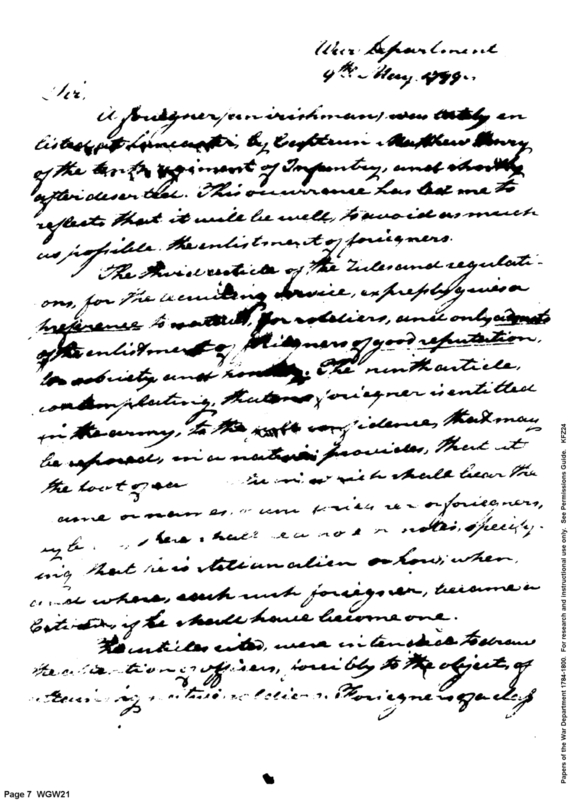 War Department
9th May 1799.
Sir,
A foreigner (an irishman) was lately en
listed at Lancaster, by Captain Matthew Henry
of the tenth regiment of Infantry, and shortly
after deserted. This occurrence has led me to
reflect that it will be well, to avoid as much
as possible the enlistment of foreigners.
The third article of the rules and regulati-
ons, for the recruiting service, expressly gives a
preference to natives, for soldiers, and only admits
of the enlistment of foreigners of good reputation,
for sobriety and honesty. The ninth article,
contemplating, that no foreigner is entitled
in the army, to the confidence, that may
be reposed, in a native provides, that at
the foot of which shall bear the
name or names or foreigners,
there shall be a note or notes, specify-
ing that he is still an alien or how, when,
and where, each such foreigner, became a
Citizen if he shall have become one.
The articles cited, were intended to draw
the attention of officers, forcibly to the objects of
obtaining native soldiers. Foreigners of a class
Page 7 WGW21
Papers of the War Department 1784-1800. For research and instructional use only. See Permissions Guide. KFZ24